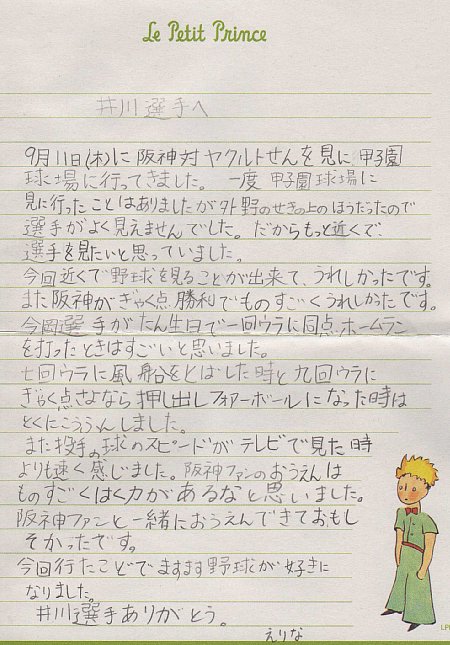 Le Petit Prince
井川選手へ
9月11日(木)に阪神対ヤクルトせんを見に甲子園
球場に行ってきました。一度甲子園球場に
見に行ったことはありましたが外野のせきの上のほうだったので
選手がよく見えませんでした。だからもっと近くで、
選手を見たいと思っていました。
今回近くで野球を見ることが出来て、うれしかったです。
また阪神がぎゃく点勝利でものすごくうれしかったです。
今岡選手がたん生日で一回ウラに同点ホームラン
を打ったときはすごいと思いました。
七回ウラに風船をとばした時と九回ウラに
ぎゃく点さよなら押し出しフォアーボールになった時は
とくにこうふんしました。
また投手の球のスピードがテレビで見た時
よりも速く感じました。阪神ファンのおうえんは
ものすごくはく力があるなと思いました。
阪神ファンと一緒におうえんできておもし
ろかったです。
今回行たことでますます野球が好きに
なりました。
井川選手ありがとう。
えりな